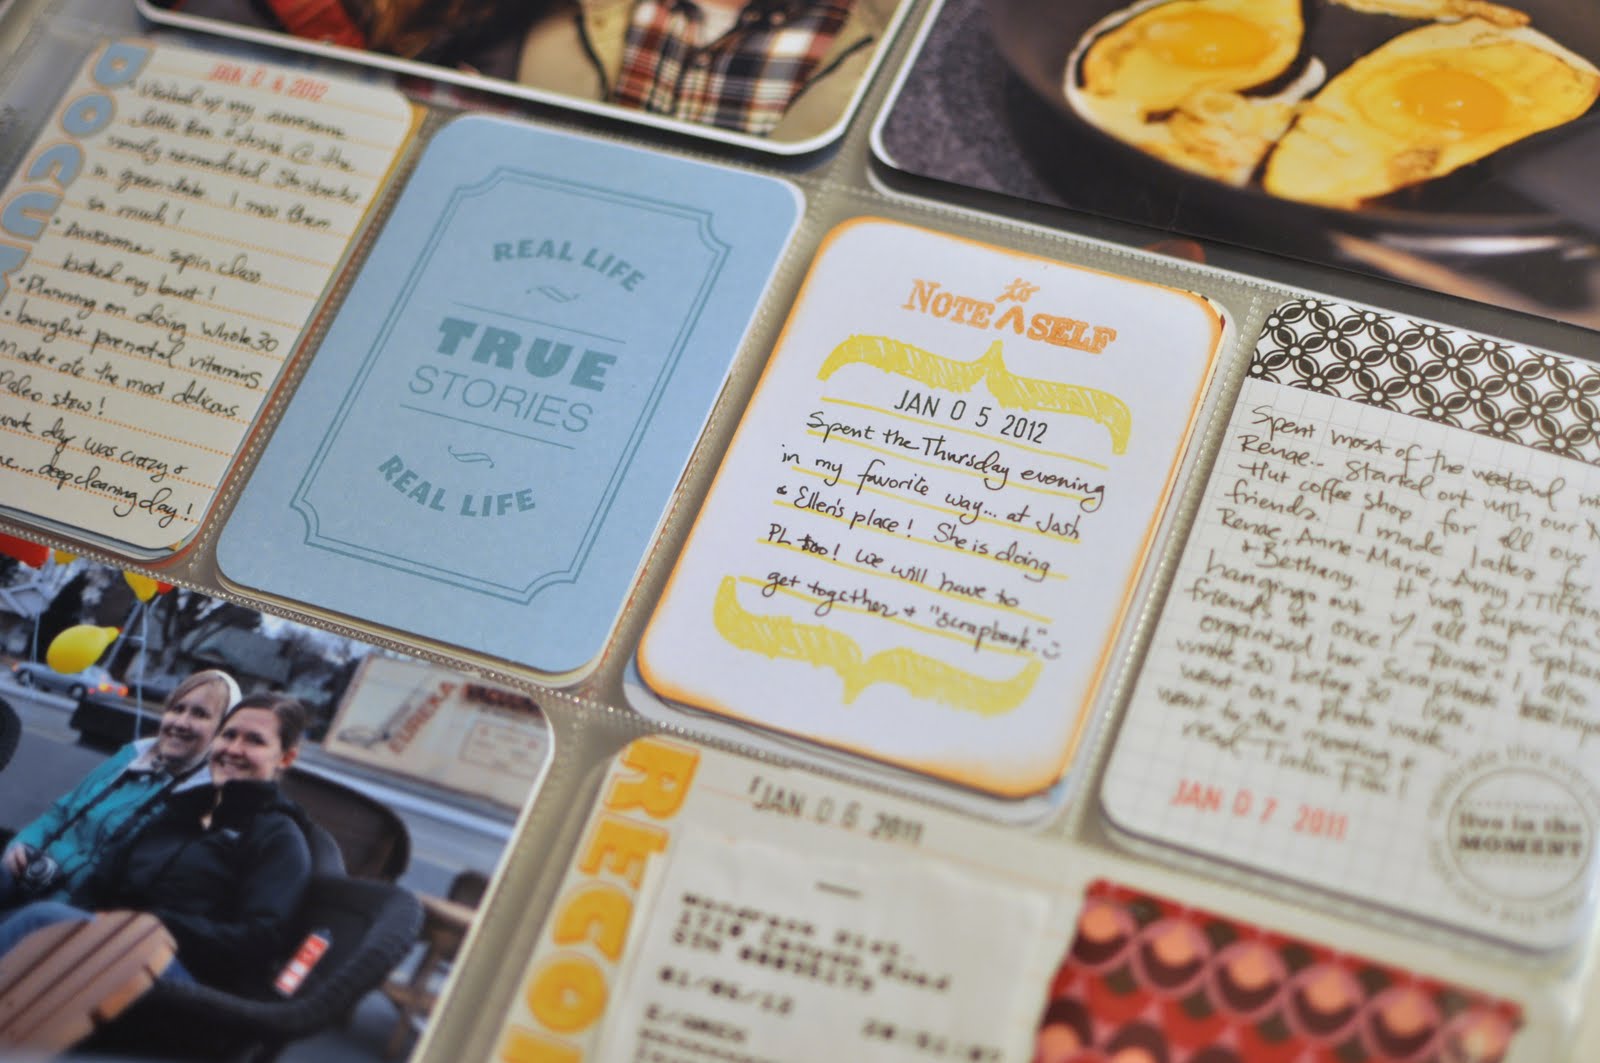 JAN 0 4 2012
• Visited w/ my awesome
little Bro & sissie @ the
newly remodeled Starbucks
in greenlake. I miss them
so much!
• Awesome spin class
kicked my butt!
• Planning on doing whole30
• bought prenatal vitamins
made & ate the most delicous
Paleo stew!
work day was crazy &
deep cleaning day!
REAL LIFE
TRUE
STORIES
REAL LIFE
NOTE to SELF
JAN 0 5 2012
Spent the Thursday evening
in my favorite way... at Jash
& Ellen's place! She is doing
PL too! We will have to
get together & "scrapbook".
Spent most of the weekend
Renae.. Started out with our
Hut coffee shop for all our
friends. I made lattes for
Renae, Anne-Marie, Amy, Tiffany
& Bethany. It was super-fun
hanging out w/ all my Spokane
friends at once! Renae & I also
organized her scrapbook
wrote 30 before 30 lists.
went on a photo walk,
went to the meeting &
JAN 0 7 2011
live in the
MOMENT
EUREKA
RECO
JAN 0 6 2011
1710
01/06/12